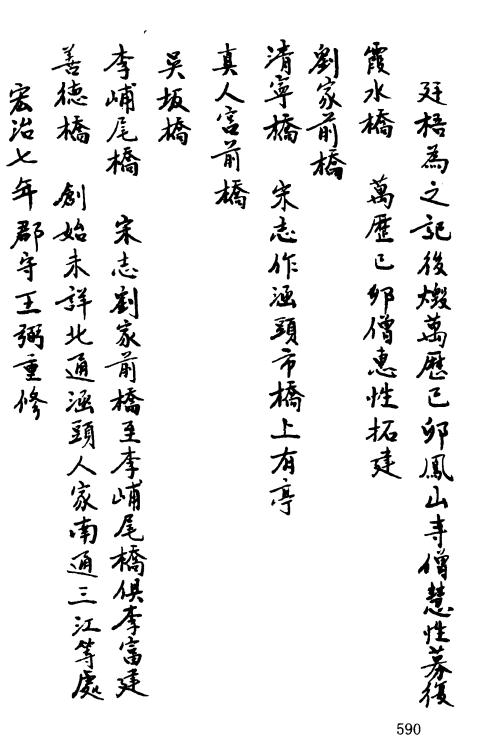 廷梧為之記後燬萬歷己卯鳳山寺僧慧性募復
霞水橋　萬歷己卯僧惠性拓建
劉家前橋
清寧橋　宋志作涵頭市橋上有亭
真人宮前橋
吳坂橋
李峬尾橋　宋志劉家前橋至李峬尾橋俱李富建
善德橋　創始未詳北通涵頭人家南通三江等處
宏治七年郡守王弼重修
590